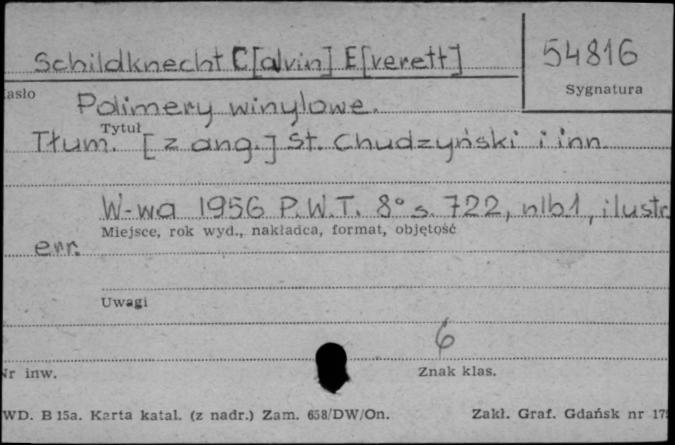 Schildknecht C[alvin] E[verett]
54816
asło
Sygnatura
Polimery winylowe.
Tytuł
Tłum. [z ang.] St. Chudzyński i inn.
W-wa 1956 P.W.T. 8° s. 722, nlb1, ilustr.
Miejsce, rok wyd., nakładca, format, objętość
err.
Uwagi
6
Nr inw.
Znak klas.
WD. B 15a. Karta katal. (z nadr.) Zam. 658/DW/On.
Zakł. Graf. Gdańsk nr 17